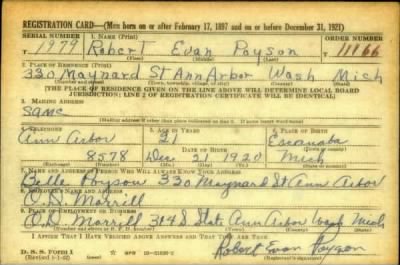 REGISTRATION CARD—(Men born on or after February 17, 1897 and on or before December 31, 1921)
SERIAL NUMBER 1. NAME (Print) ORDER NUMBER
T 1979 Robert Evan Poyson 11166
(First) (Middle) (Last)
2. PLACE OF RESIDENCE (Print)
330 Maynard St Ann Arbor Wash Mich
(Number and street) (Town, township, village, or city) (County) (State)
[THE PLACE OF RESIDENCE GIVEN ON THE LINE ABOVE WILL DETERMINE LOCAL BOARD
JURISDICTION; LINE 2 OF REGISTRATION CERTIFICATE WILL BE IDENTICAL]
3. MAILING ADDRESS
Same
[Mailing address if other than place indicated on line 2. If same insert word same]
4. TELEPHONE 5. AGE IN YEARS 6. PLACE OF BIRTH
Ann Arbor 21 Escanaba
DATE OF BIRTH
8578 Dec. 21 1920 Mich
(Exchange) (Number) (Mo.) (Day) (Yr.) (State or country)
7. NAME AND ADDRESS OF PERSON WHO WILL ALWAYS KNOW YOUR ADDRESS
Belle Poyson 330 Maynard St Ann Arbor
8. EMPLOYER'S NAME AND ADDRESS
O.D. Morrill
9. PLACE OF EMPLOYMENT OR BUSINESS
O.D. Morrill 314 S. State Ann Arbor Wash Mich
I AFFIRM THAT I HAVE VERIFIED ABOVE ANSWERS AND THAT THEY ARE TRUE.
D. S. S. Form 1 GPO
Robert Evan Poyson
(Registrant's signature)